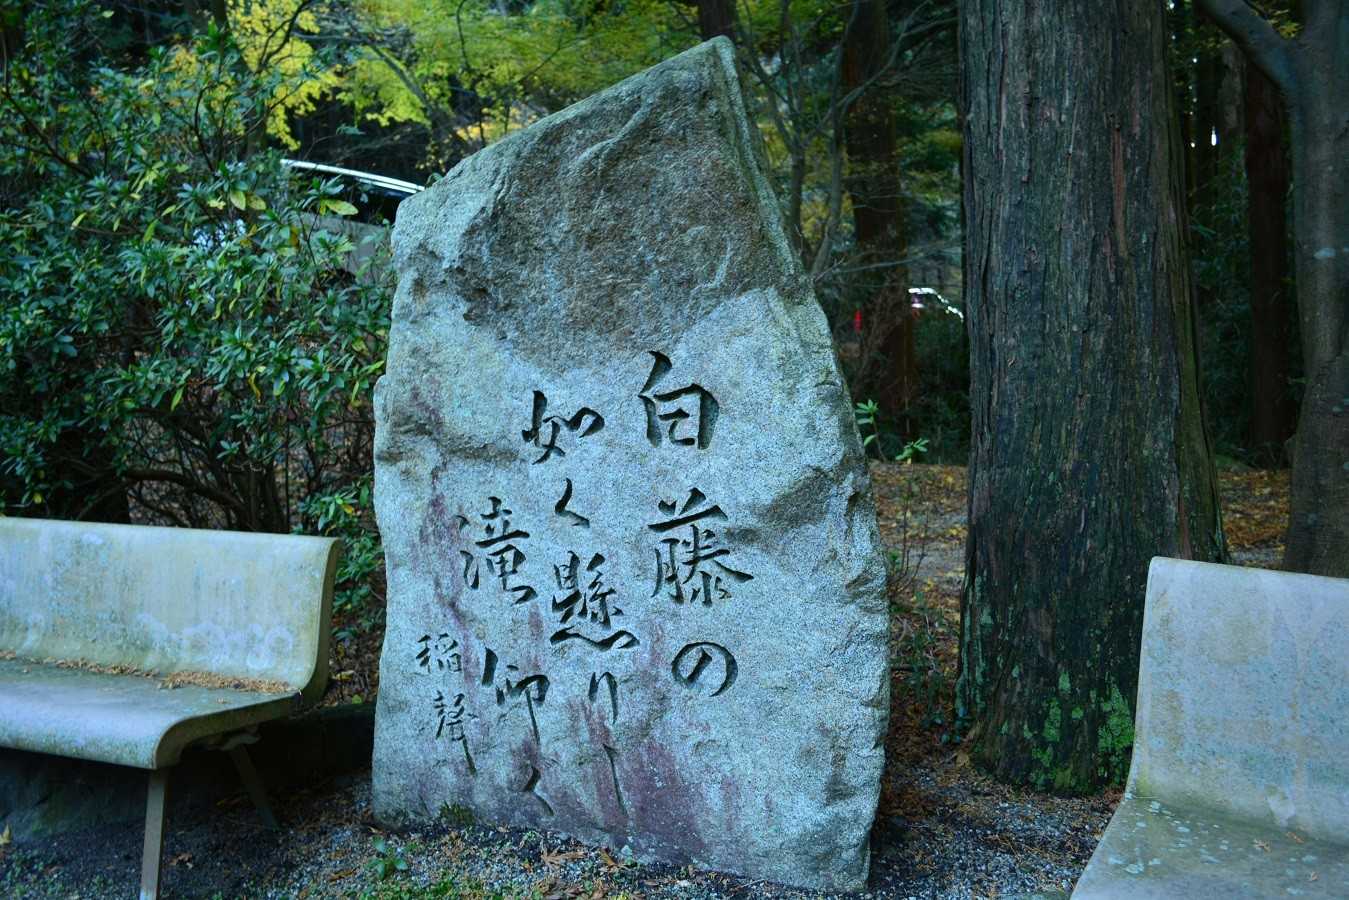 白藤の
如く懸りし
滝仰く
稲聲